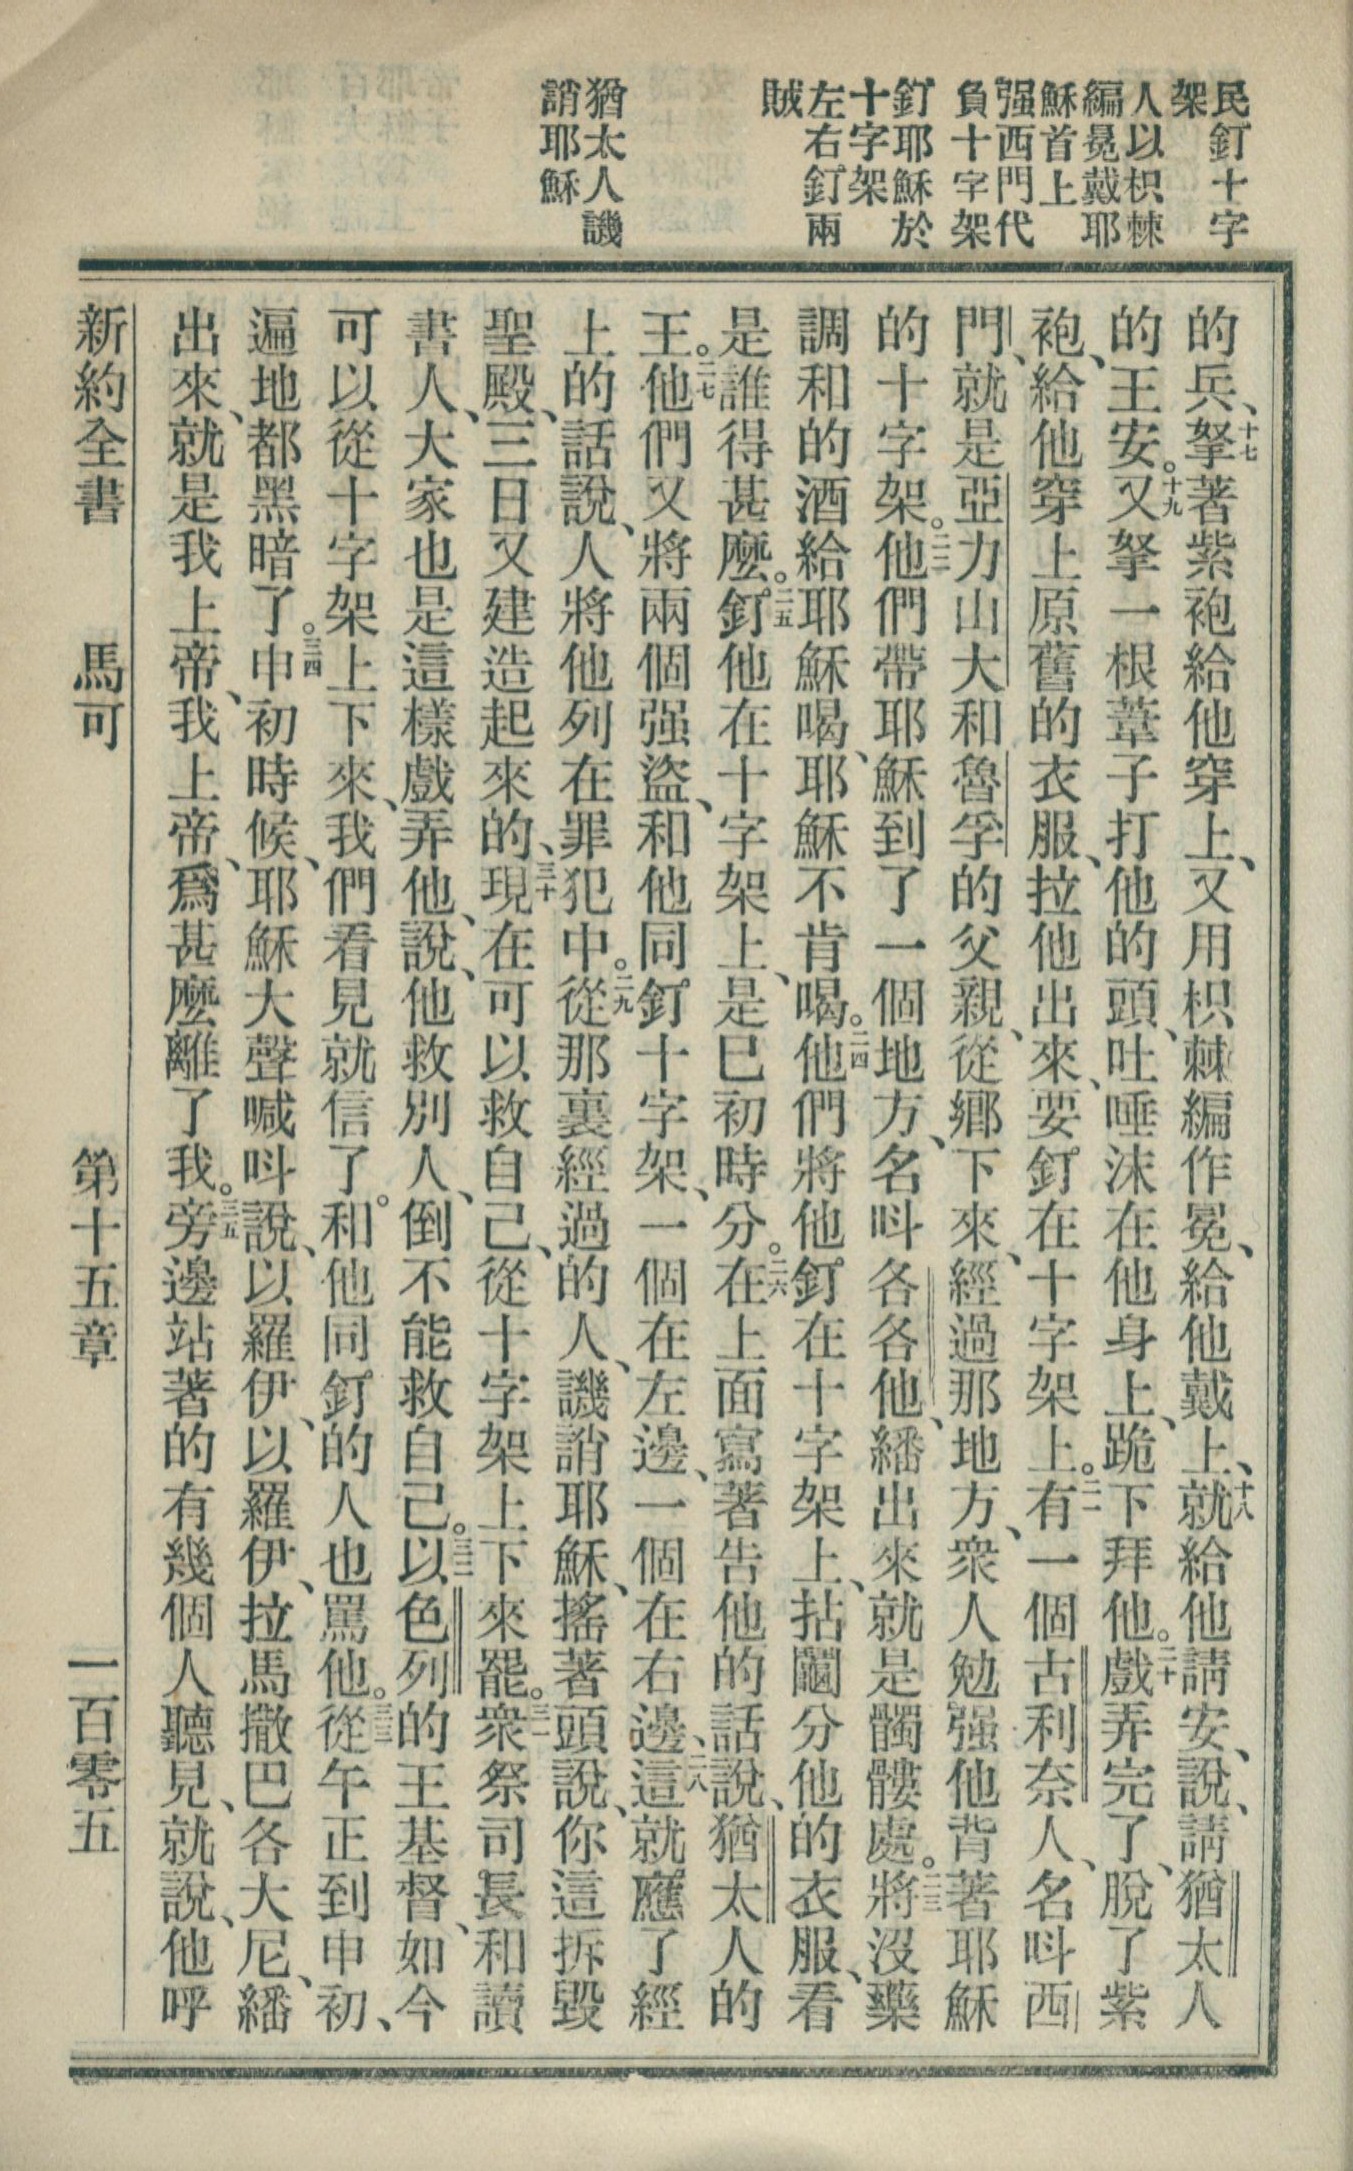 民釘十字
架
人以枳棘
編冕戴耶
穌首上
强西門代
負十字架
釘耶穌於
十字架
左右釘兩
賊
猶太人譏
誚耶穌
的兵、十七拏著紫袍給他穿上、又用枳棘編作冕、給他戴上、十八就給他請安、說、請猶太人
的王安。十九又拏一根葦子打他的頭、吐唾沫在他身上、跪下拜他。二十戲弄完了、脫了紫
袍、給他穿上原舊的衣服、拉他出來、要釘在十字架上。二一有一個古利奈人、名呌西
門、就是亞力山大和魯孚的父親、從鄉下來、經過那地方、衆人勉强他背著耶穌
的十字架。二二他們帶耶穌到了一個地方、名呌各各他、繙出來就是髑髏處。二三將沒藥
調和的酒給耶穌喝、耶穌不肯喝。二四他們將他釘在十字架上、拈鬮分他的衣服、看
是誰得甚麽。二五釘他在十字架上、是巳初時分。二六在上面寫著告他的話說、猶太人的
王。二七他們又將兩個强盜、和他同釘十字架、一個在左邊、一個在右邊、二八這就應了經
上的話說、人將他列在罪犯中。二九從那裏經過的人、譏誚耶穌、搖著頭說、你這拆毀
聖殿、三日又建造起來的、三十現在可以救自己、從十字架上下來罷。三一衆祭司長和讀
書人、大家也是這樣戲弄他、說、他救別人、倒不能救自己。三二以色列的王基督、如今
可以從十字架上下來、我們看見就信了。和他同釘的人也罵他。三三從午正到申初、
遍地都黑暗了。三四申初時候、耶穌大聲喊呌說、以羅伊、以羅伊、拉馬撒巴各大尼、繙
出來、就是我上帝、我上帝、爲甚麽離了我。三五旁邊站著的有幾個人聽見、就說、他呼
新約全書　馬可　第十五章　一百零五